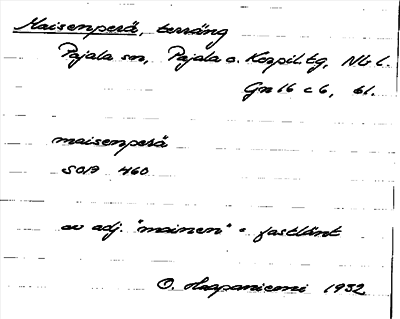 Maisenperä, terräng
Pajala sn, Pajala o. Korpil. tg, Nb l.
Gn 16 c 6, 61.
maisenperä
SOA 460
av adj. "mainen" = fastlänt
O. Haapaniemi 1932